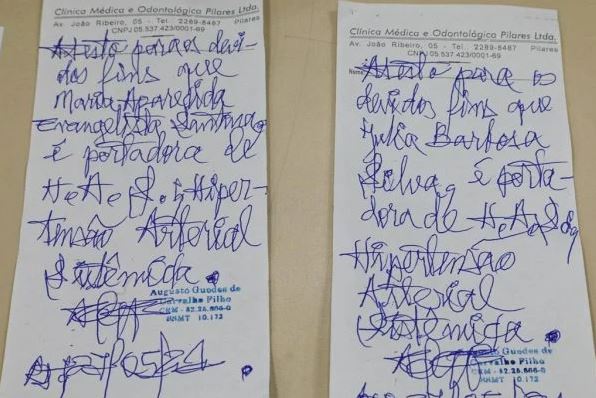 Clínica Médica e Odontológica Pilares Ltda.
Av. João Ribeiro, 05 - Tel. 2289-8487 Pilares
CNPJ 05.537.423/0001-69
Atesto para os devi-
dos fins que
Maria Aparecida
Evangelista Santana
é portadora de
H.A.S.; Hiper-
tensão Arterial
Sistêmica.
Augusto Guedes de
Carvalho Filho
CRM - 52.26.666-0
10.172
Clínica Médica e Odontológica Pilares Ltda.
Av. João Ribeiro, 05 - Tel. 2289-8487 Pilares
CNPJ 05.537.423/0001-69
Nome
Atesto para os
devidos fins que
Julia Barbosa
Silva, é porta-
dora de H.A.S.,
Hipertensão
Arterial
Sistêmica.
Guedes de
Filho
CRM - 52.26.666-0
10.172